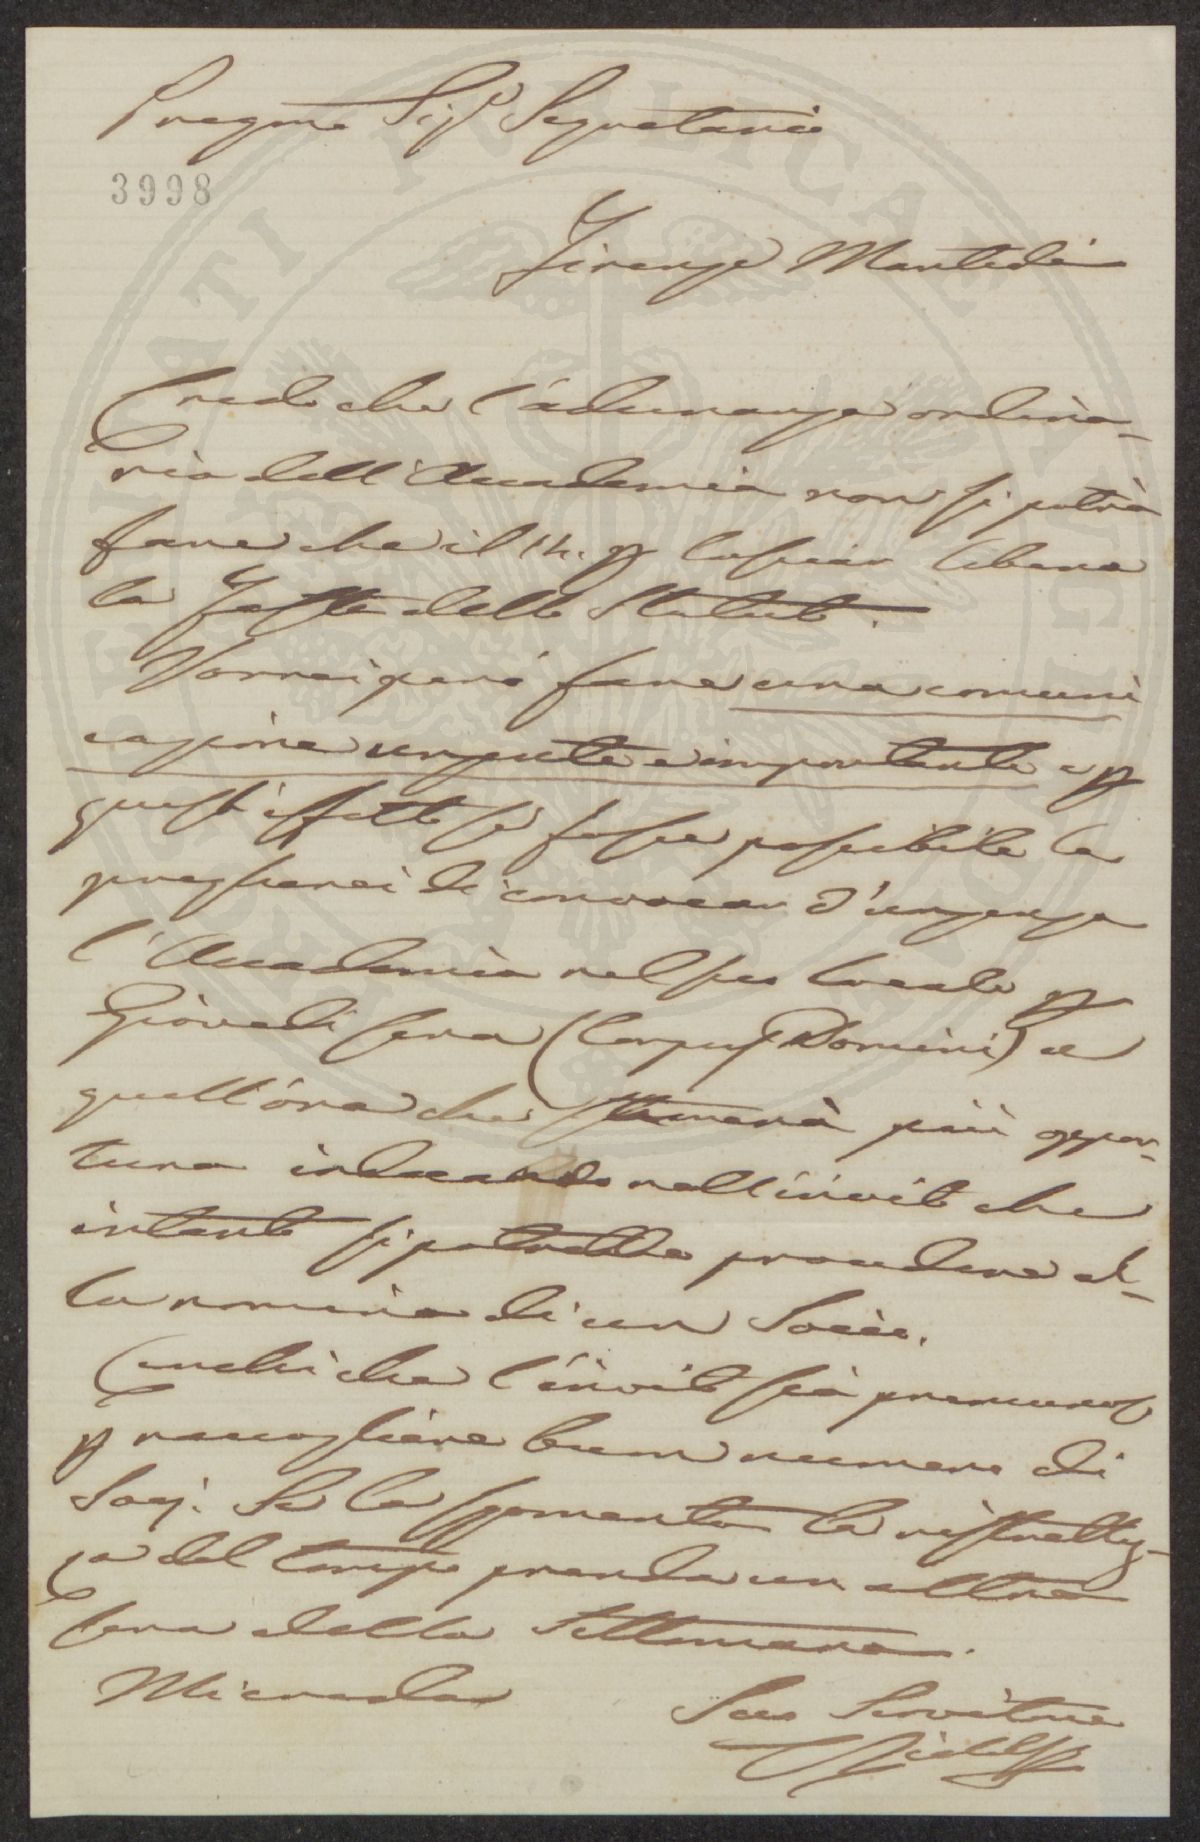 Pregmo Sigr Segretario
3998
Firenze Martedì
Credo che l'adunanza ordina-
ria dell'Accademia non si potrà
fare che il 14. p lasciar libera
la Festa dello Statuto.
Vorrei però fare una comuni
cazione urgente e importante e p
quest'effetto se fosse possibile la
pregherei di convocare d'urgenza
l'Accademia nel suo locale p
Giovedì sera (Corpus Domini) a
quell'ora che stimerà più oppor-
tuna indicando nell'invito che
intanto si potrebbe procedere al-
la nomina di un Socio.
che l'invito sia premuroso
p raccogliere buon numero di
Socj. Se la sgomenta la ristrettez-
za del tempo prenda un altra
sera della Settimana.
Mi creda
Suo Servitore